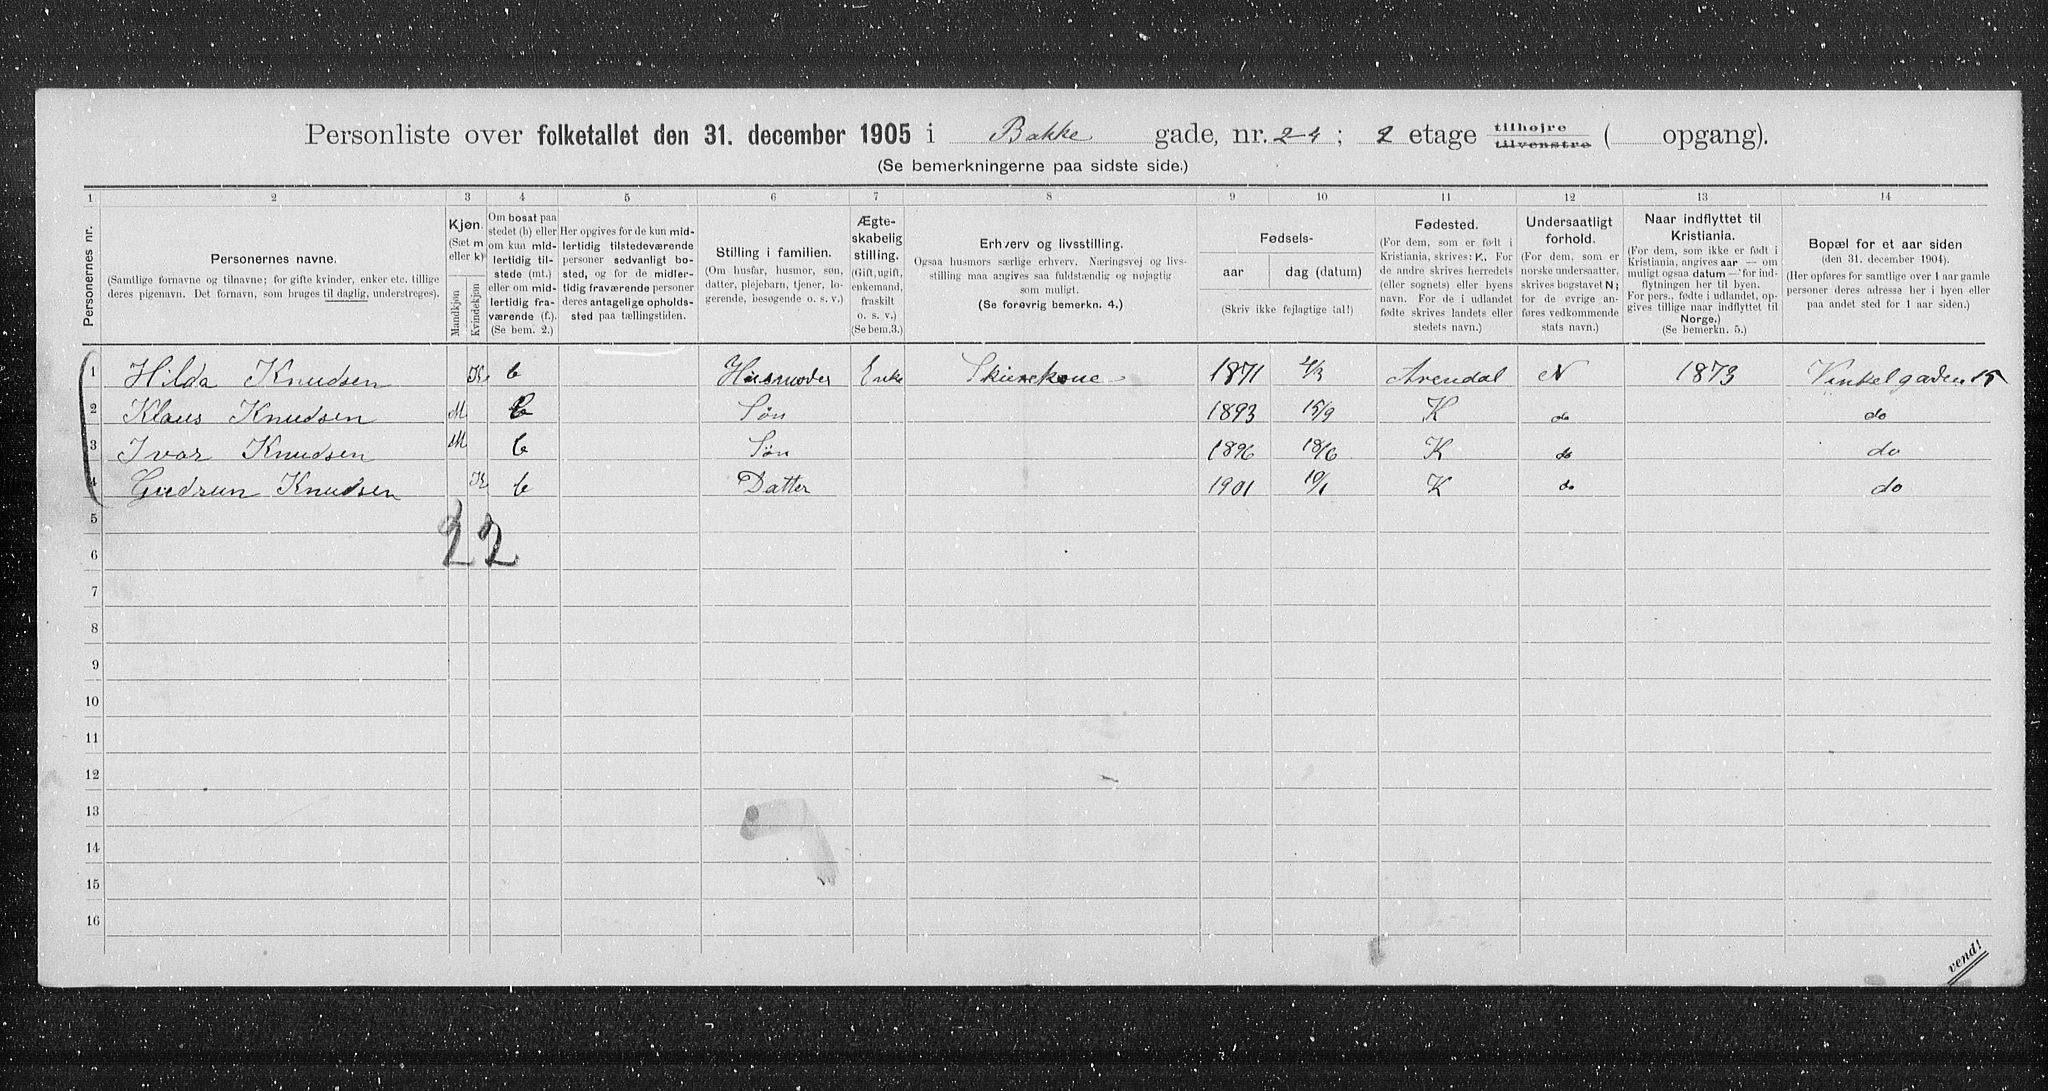 Personliste over folketallet den 31. december 1905 i Bakke gade, nr. 24; 2 etage tilhøjre tilvenstre ( opgang).
(Se bemerkningerne paa sidste side.)
1 2 3 4 5 6 7 8 9 10 11 12 13 14
Personernes nr.
Personernes navne.
(Samtlige fornavne og tilnavne; for gifte kvinder, enker etc. tillige
deres pigenavn. Det fornavn, som bruges til daglig, understreges).
Kjøn.
(Sæt m
eller k)
Mandkjøn
Kvindekjøn
Om bosat paa
stedet (b) eller
om kun mid-
lertidig til-
stede (mt.)
eller om mid-
lertidig fra-
værende (f.).
(Se bem. 2.)
Her opgives for de kun mid-
lertidig tilstedeværende
personer sedvanligt bo-
sted, og for de midler-
tidig fraværende personer
deres antagelige opholds-
sted paa tællingstiden.
Stilling i familien.
(Om husfar, husmor, søn,
datter, plejebarn, tjener, lo-
gerende, besøgende o. s. v.)
Ægte-
skabelig
stilling.
(Gift, ugift,
enkemand,
fraskilt
o. s. v.)
(Se bem. 3.)
Erhverv og livsstilling.
Ogsaa husmors særlige erhverv. Næringsvej og livs-
stilling maa angives saa fuldstændig og nøjagtig
som muligt.
(Se forøvrig bemerkn. 4.)
Fødsels-
aar dag (datum)
(Skriv ikke fejlagtige tal!)
Fødested.
(For dem, som er født i
Kristiania, skrives: K. For
de andre skrives herredets
(eller sognets) eller byens
navn. For de i udlandet
fødte skrives landets eller
stedets navn.)
Undersaatligt
forhold.
(For dem, som er
norske undersaatter,
skrives bogstavet N;
for de øvrige an-
føres vedkommende
stats navn.)
Naar indflyttet til
Kristiania.
(For dem, som ikke er født i
Kristiania, angives aar — om
muligt ogsaa datum — for ind-
flytningen her til byen.
For pers., fødte i udlandet, op-
gives tillige naar indflyttet til
Norge.)
(Se bemerkn. 5.)
Bopæl for et aar siden
(den 31. december 1904).
(Her opføres for samtlige over 1 aar gamle
personer deres adresse her i byen eller
paa andet sted for 1 aar siden.)
1 Hilda Knudsen K b Husmoder Enke Skurekone 1871 Arendal N 1873 Vinkelgaden 15
2 Klaus Knudsen M b Søn 1893 15/9 K do do
3 Ivar Knudsen M b Søn 1896 18/6 K do do
4 Gudrun Knudsen K b Datter 1901 10/1 K do do
5
2 2
6
7
8
9
10
11
12
13
14
15
16
vend!